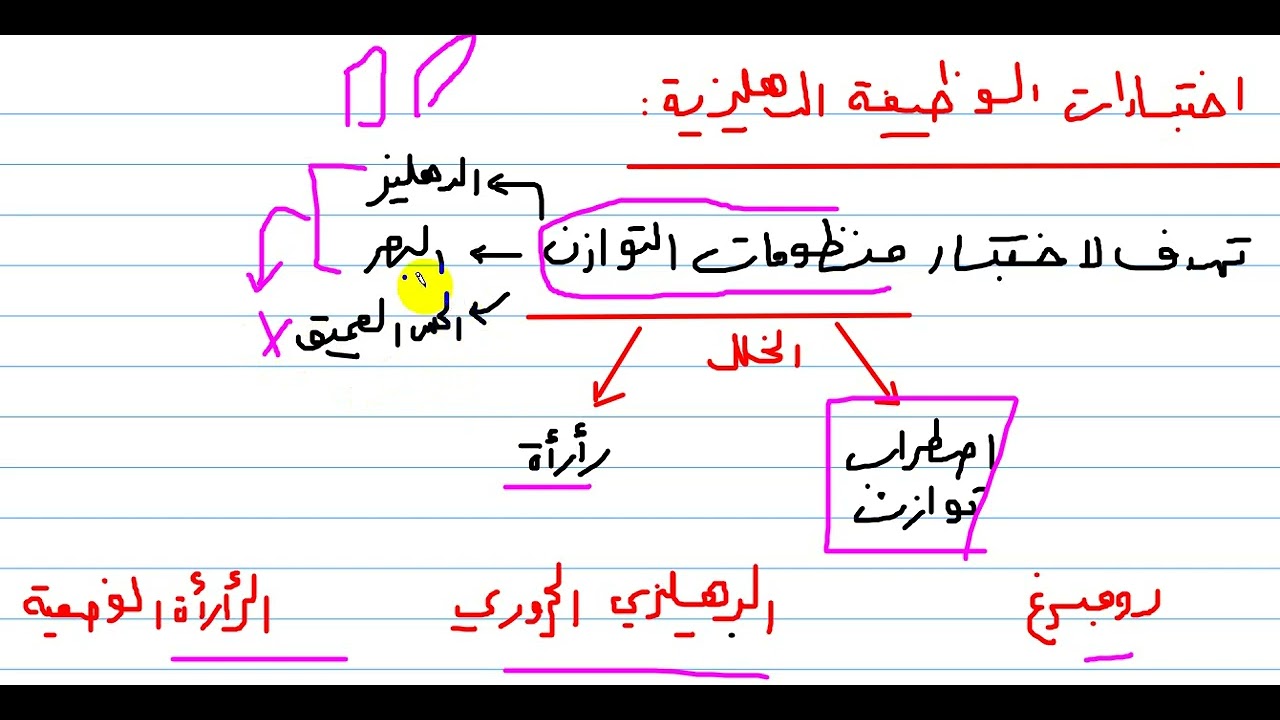 اختبارات الوظيفة الدهليزية :
تهدف لاختبار منظومات التوازن
الدهليز
البصر
الحس العميق
X
الخلل
اضطراب
توازن
رأرأة
رومبرغ
الدهليزي الحروري
الرأرأة الوضعية